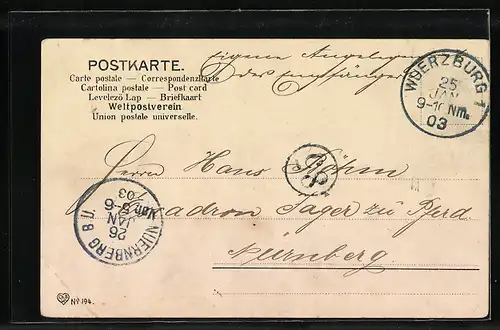 POSTKARTE.
Carte postale — Correspondenzkarte
Cartolina postale — Post card
Levelező Lap — Briefkaart
Weltpostverein
Union postale universelle.
Eigene Angelegenheit
des Empfängers
WUERZBURG 1
25
JAN
9-10 Nm.
03
Herrn Hans Böhm
Jäger zu Pferd
Nürnberg
NUERNBERG
26
JAN
03
No 194.